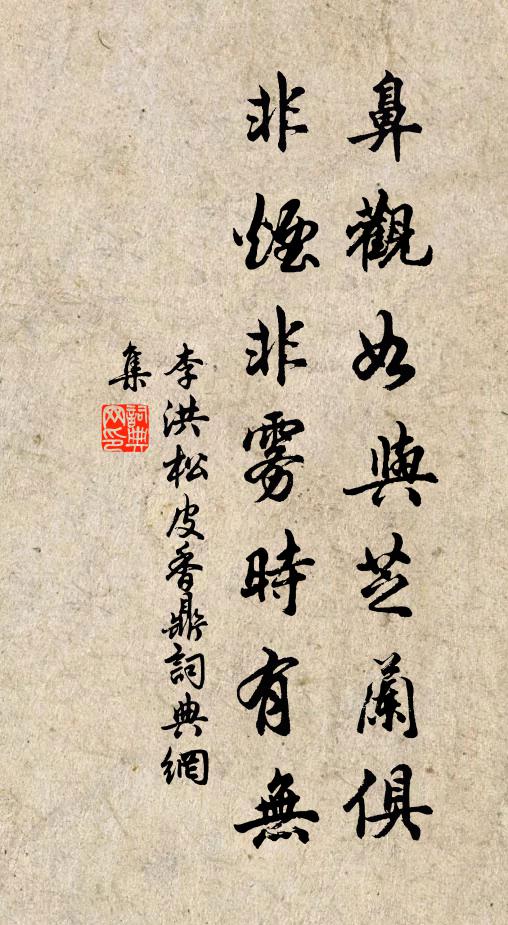 鼻觀如與芝蘭俱
非煙非雾時有無
李洪松皮香鼎詞典網
集
詞典
网印